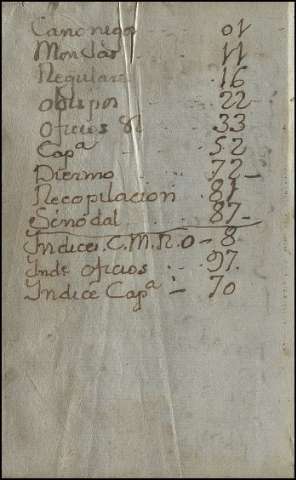 Canonigo 01
Monjas 11
Regulares 16
obispos 22
oficios & 33
Capª 52
Diezmo 72
Recopilacion 81
Sinodal 87
Indices. C. M. R. O - 8
Indᵉ oficios 97
Indice Capª 70